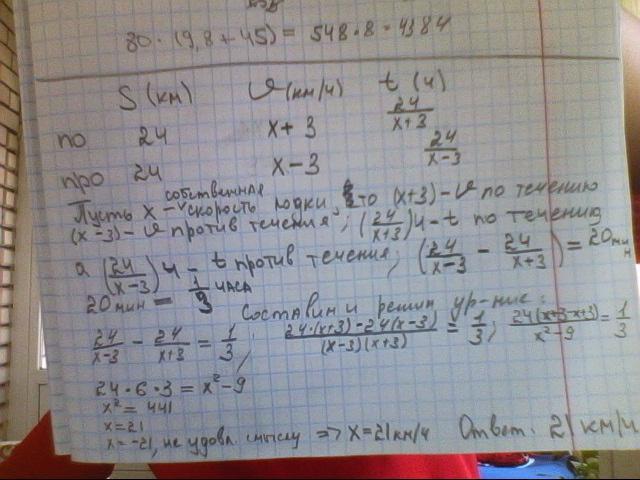 80 · (9,8 + 45) = 548 · 8 = 4384
S (км) V (км/ч) t (ч)
по 24 x + 3 24/(x+3)
про 24 x − 3 24/(x−3)
Пусть x – собственная скорость лодки, то (x+3) – V по течению
(x−3) – V против течения; (24/(x+3)) ч – t по течению,
а (24/(x−3)) ч – t против течения; (24/(x−3) − 24/(x+3)) = 20 мин
20 мин = 1/3 часа
Составим и решим ур-ние:
24/(x−3) − 24/(x+3) = 1/3; (24·(x+3)−24(x−3))/((x−3)(x+3)) = 1/3; 24(x+3−x+3)/(x²−9) = 1/3
24 · 6 · 3 = x² − 9
x² = 441
x = 21
x = −21, не удовл. смыслу => x = 21 км/ч Ответ: 21 км/ч